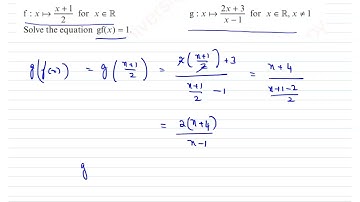 f : x ↦ (x+1)/2 for x ∈ ℝ    g : x ↦ (2x+3)/(x−1) for x ∈ ℝ, x ≠ 1
Solve the equation gf(x) = 1.
g(f(x)) = g((x+1)/2) = (2((x+1)/2)+3)/((x+1)/2 −1) = (x+4)/((x+1−2)/2)
= 2(x+4)/(x−1)
g